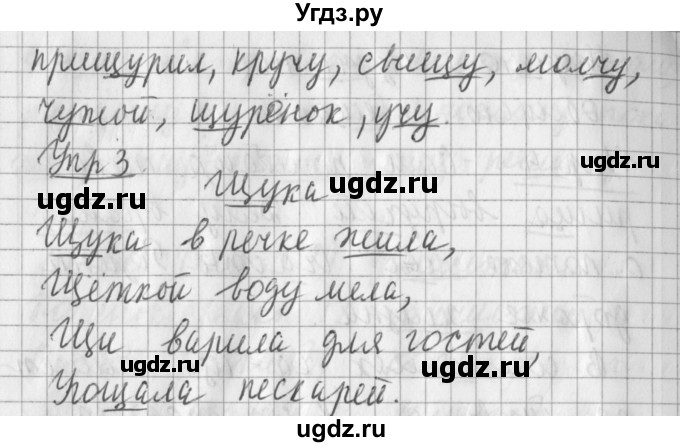 Угдз.ру
прищурил, кручу, свищу, молчу,
чужой, щурёнок, учу.
Упр 3
Щука
Щука в речке жила,
Щёткой воду мела,
Щи варила для гостей,
Угощала пескарей.
ugdz.ru
ugdz.ru
ugdz.ru
ugdz.ru
ugdz.ru
ugdz.ru
ugdz.ru
ugdz.ru